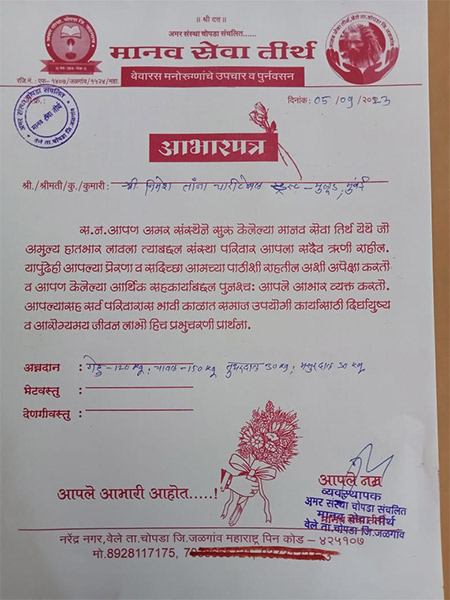 ॥ श्री दत्त ॥
अमर संस्था चोपडा संचलित.....
मानव सेवा तीर्थ
बेवारस मनोरुग्णांचे उपचार व पुर्नवसन
रजि.नं.: एफ- १४०७/जळगांव/१५२४/महा.
दिनांक: 05/09/2023
अमर संस्था, चोपडा संचलित
मानव सेवा तीर्थ
वेले ता.चोपडा जि.जळगांव
आभारपत्र
श्री./श्रीमती/कु./कुमारी: श्री निमेश तांना चारीटेबल ट्रस्ट - मुलूंड, मुंबई
स.न.आपण अमर संस्थेने सुरु केलेल्या मानव सेवा तिर्थ येथे जो
अमुल्य हातभार लावला त्याबद्दल संस्था परिवार आपला सदैव ऋणी राहील.
यापुढेही आपल्या प्रेरणा व सदिच्छा आमच्या पाठीशी राहतील अशी अपेक्षा करतो
व आपण केलेल्या आर्थिक सहकार्याबद्दल पुनश्च: आपले आभार व्यक्त करतो.
आपल्यासह सर्व परिवारास भावी काळात समाज उपयोगी कार्यासाठी दिर्घायुष्य
व आरोग्यमय जीवन लाभो हिच प्रभुचरणी प्रार्थना.
अन्नदान : गेहु - 120 kg, चावल - 150 kg तुवरदाल 30 kg, मसुरदाल 30 kg
भेटवस्तु :
देणगीवस्तु :
आपले आभारी आहोत.....!
आपले नम्र
व्यवस्थापक
अमर संस्था चोपडा संचलित
मानव सेवा तीर्थ
वेले ता.चोपडा जि.जळगांव
नरेंद्र नगर,वेले ता.चोपडा जि.जळगांव महाराष्ट्र पिन कोड - ४२५१०७
मो.8928117175,